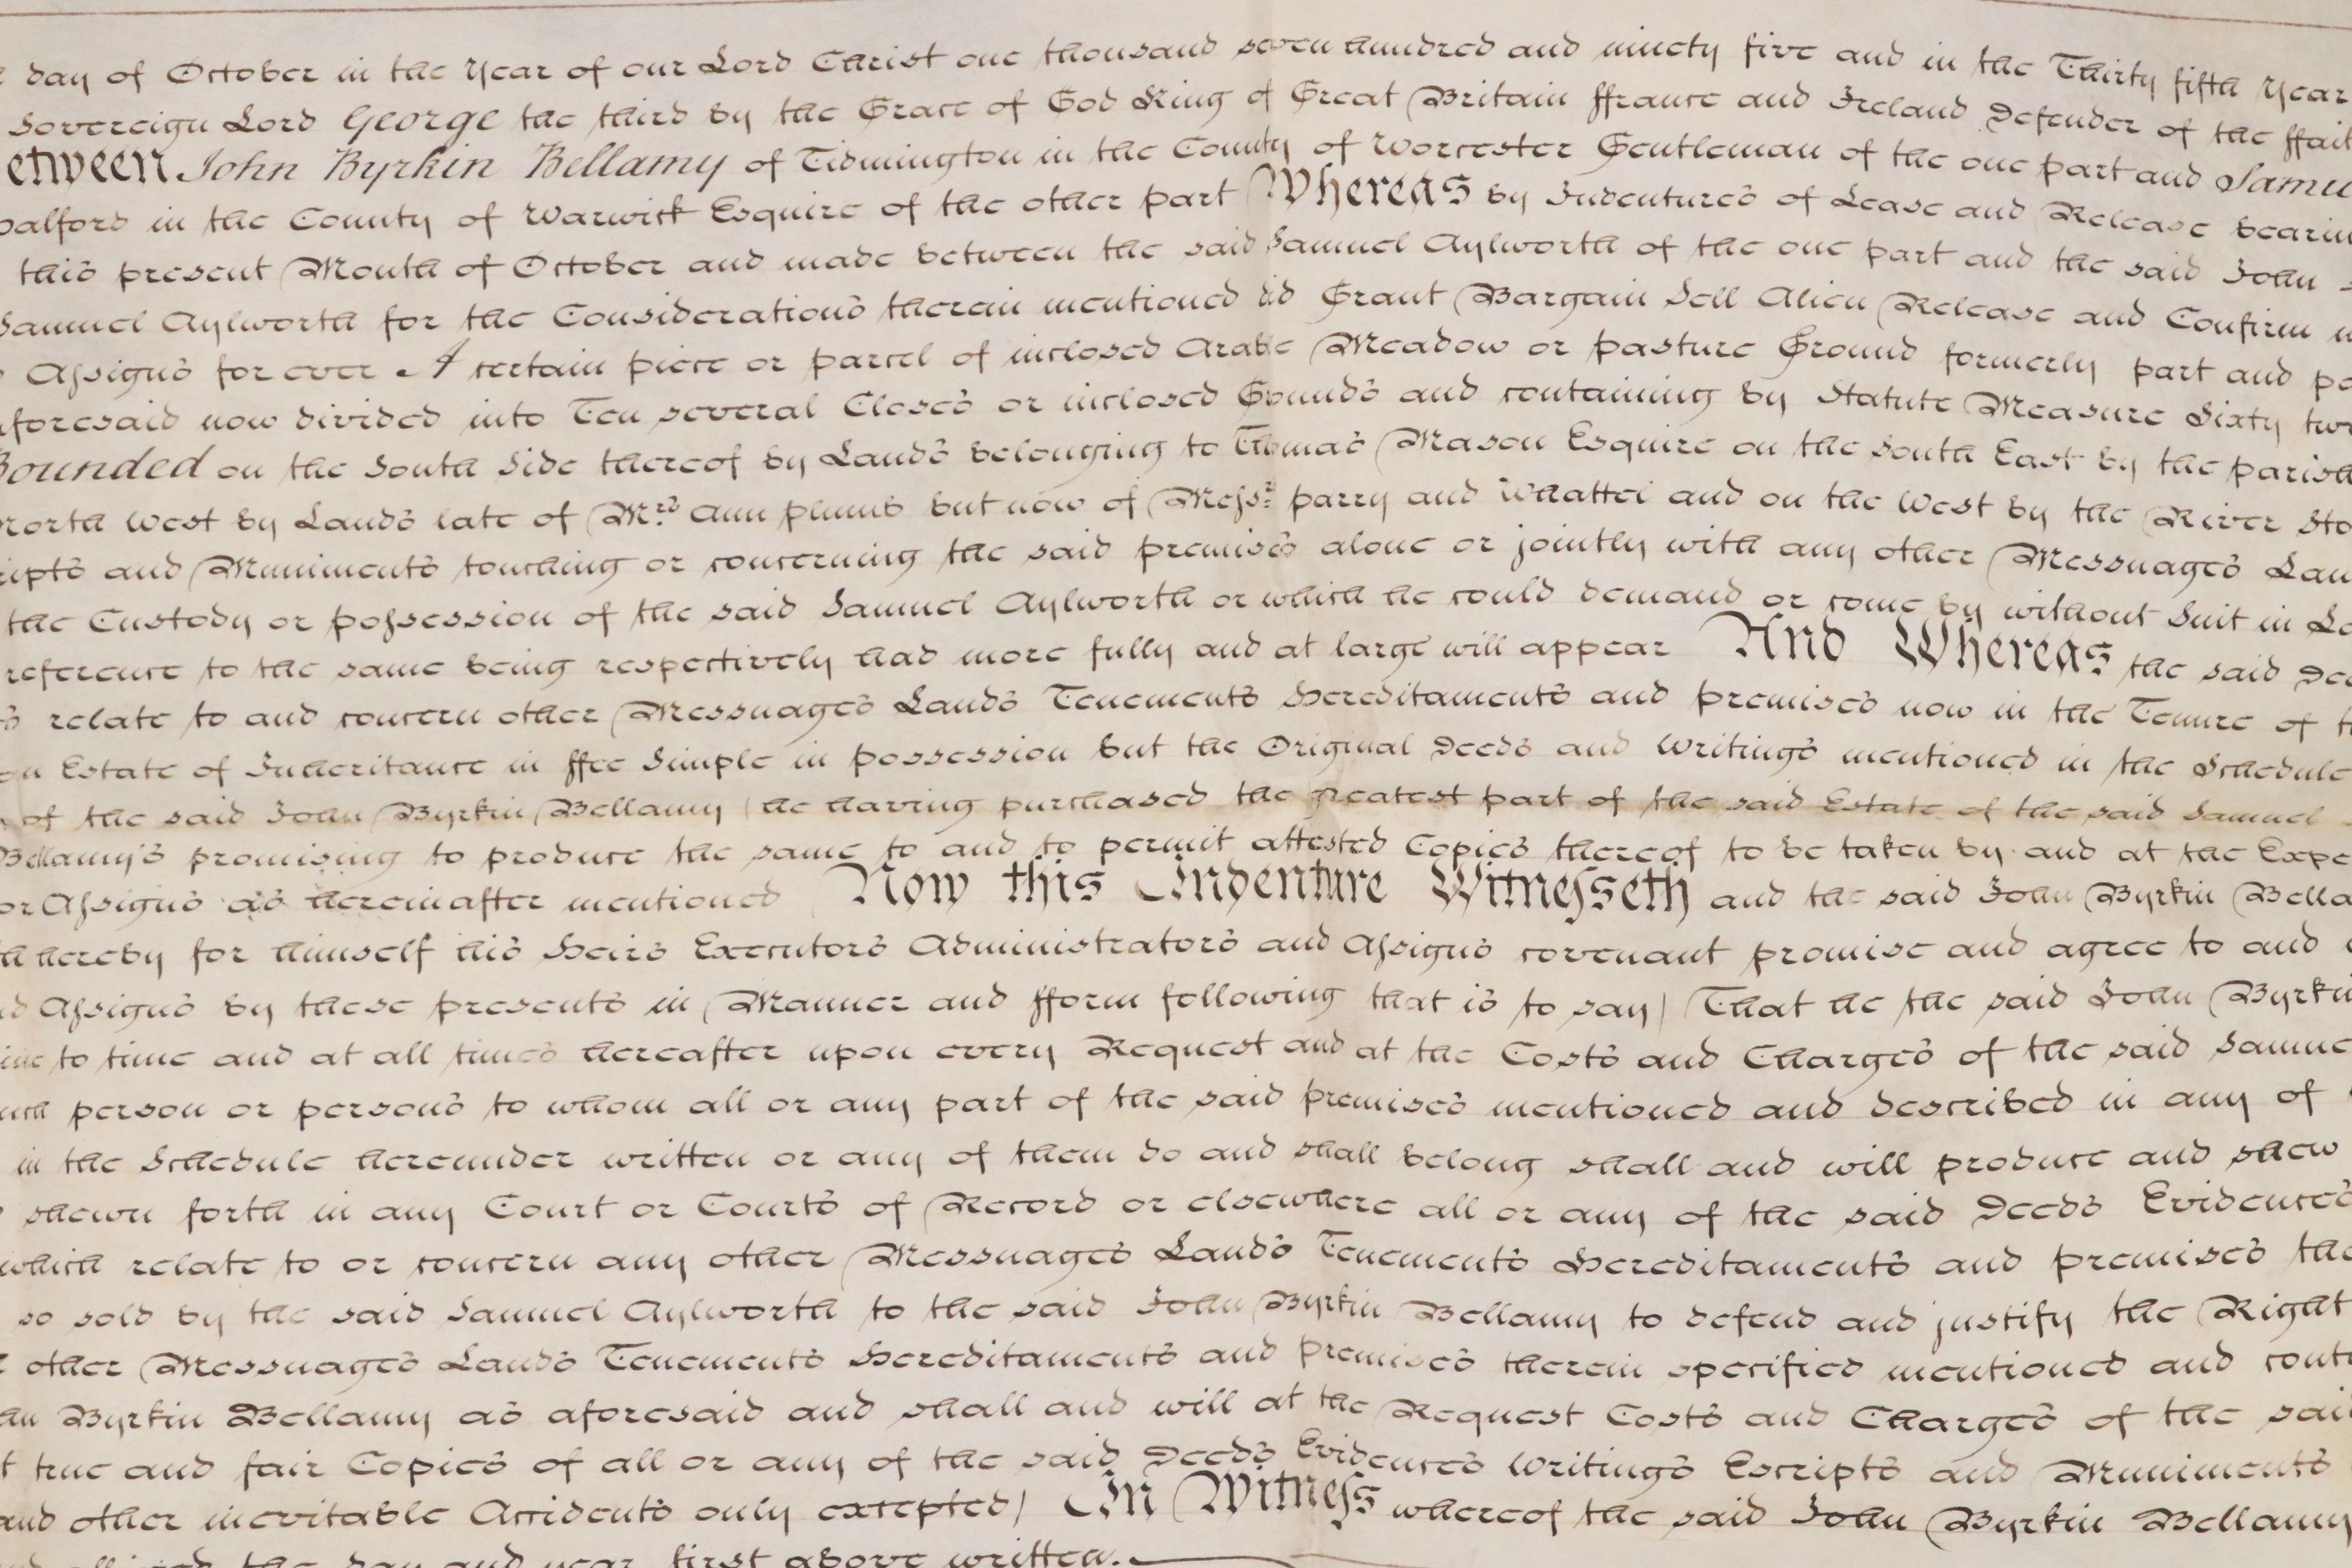 day of October in the Year of our Lord Christ one thousand seven hundred and ninety five and in the Thirty fifth Year
Sovereign Lord George the third by the Grace of God King of Great Britain ffrance and Ireland Defender of the ffait
etween John Byrkin Bellamy of Tidmington in the County of Worcester Gentleman of the one part and Samu
alford in the County of Warwick Esquire of the other part Whereas by Indentures of Lease and Release bearin
this present Month of October and made between the said Samuel Aylworth of the one part and the said John
Samuel Aylworth for the Considerations therein mentioned did Grant Bargain Sell Alien Release and Confirm
Assigns for ever A certain piece or parcel of inclosed Arable Meadow or pasture Ground formerly part and
aforesaid now divided into Ten several Closes or inclosed Grounds and containing by Statute Measure Sixty two
Bounded on the South Side thereof by Lands belonging to Thomas Mason Esquire on the South East by the parish
north West by Lands late of Mrs. Ann plumb but now of Messrs. parry and Whattei and on the West by the River Sto
ripts and Muniments touching or concerning the said premises alone or jointly with any other Messuages Lan
the Custody or possession of the said Samuel Aylworth or which he could demand or come by without Suit in
reference to the same being respectively had more fully and at large will appear And Whereas the said Dee
relate to and concern other Messuages Lands Tenements Hereditaments and premises now in the Tenure of
an Estate of Inheritance in ffee Simple in possession but the Original Deeds and Writings mentioned in the Schedule
of the said John Byrkin Bellamy (he having purchased the greatest part of the said Estate of the said Samuel
Bellamy's promising to produce the same to and to permit attested Copies thereof to be taken by and at the Expe
or Assigns as hereinafter mentioned Now this Indenture Witnesseth and the said John Byrkin Bella
th hereby for himself his Heirs Executors Administrators and Assigns covenant promise and agree to and
d Assigns by these presents in Manner and fform following that is to say) That he the said John Byrkin
ime to time and at all times hereafter upon every Request and at the Costs and Charges of the said Samue
uch person or persons to whom all or any part of the said premises mentioned and described in any of
in the Schedule hereunder written or any of them do and shall belong shall and will produce and shew
shewn forth in any Court or Courts of Record or elsewhere all or any of the said Deeds Evidences
which relate to or concern any other Messuages Lands Tenements Hereditaments and premises the
so sold by the said Samuel Aylworth to the said John Byrkin Bellamy to defend and justify the Right
other Messuages Lands Tenements Hereditaments and Premises therein specified mentioned and cont
hn Byrkin Bellamy as aforesaid and shall and will at the Request Costs and Charges of the sai
t true and fair Copies of all or any of the said Deeds Evidences Writings Escripts and Muniments
and other inevitable Accidents only excepted) In Witness whereof the said John Byrkin Bellamy
the day and year first above written.